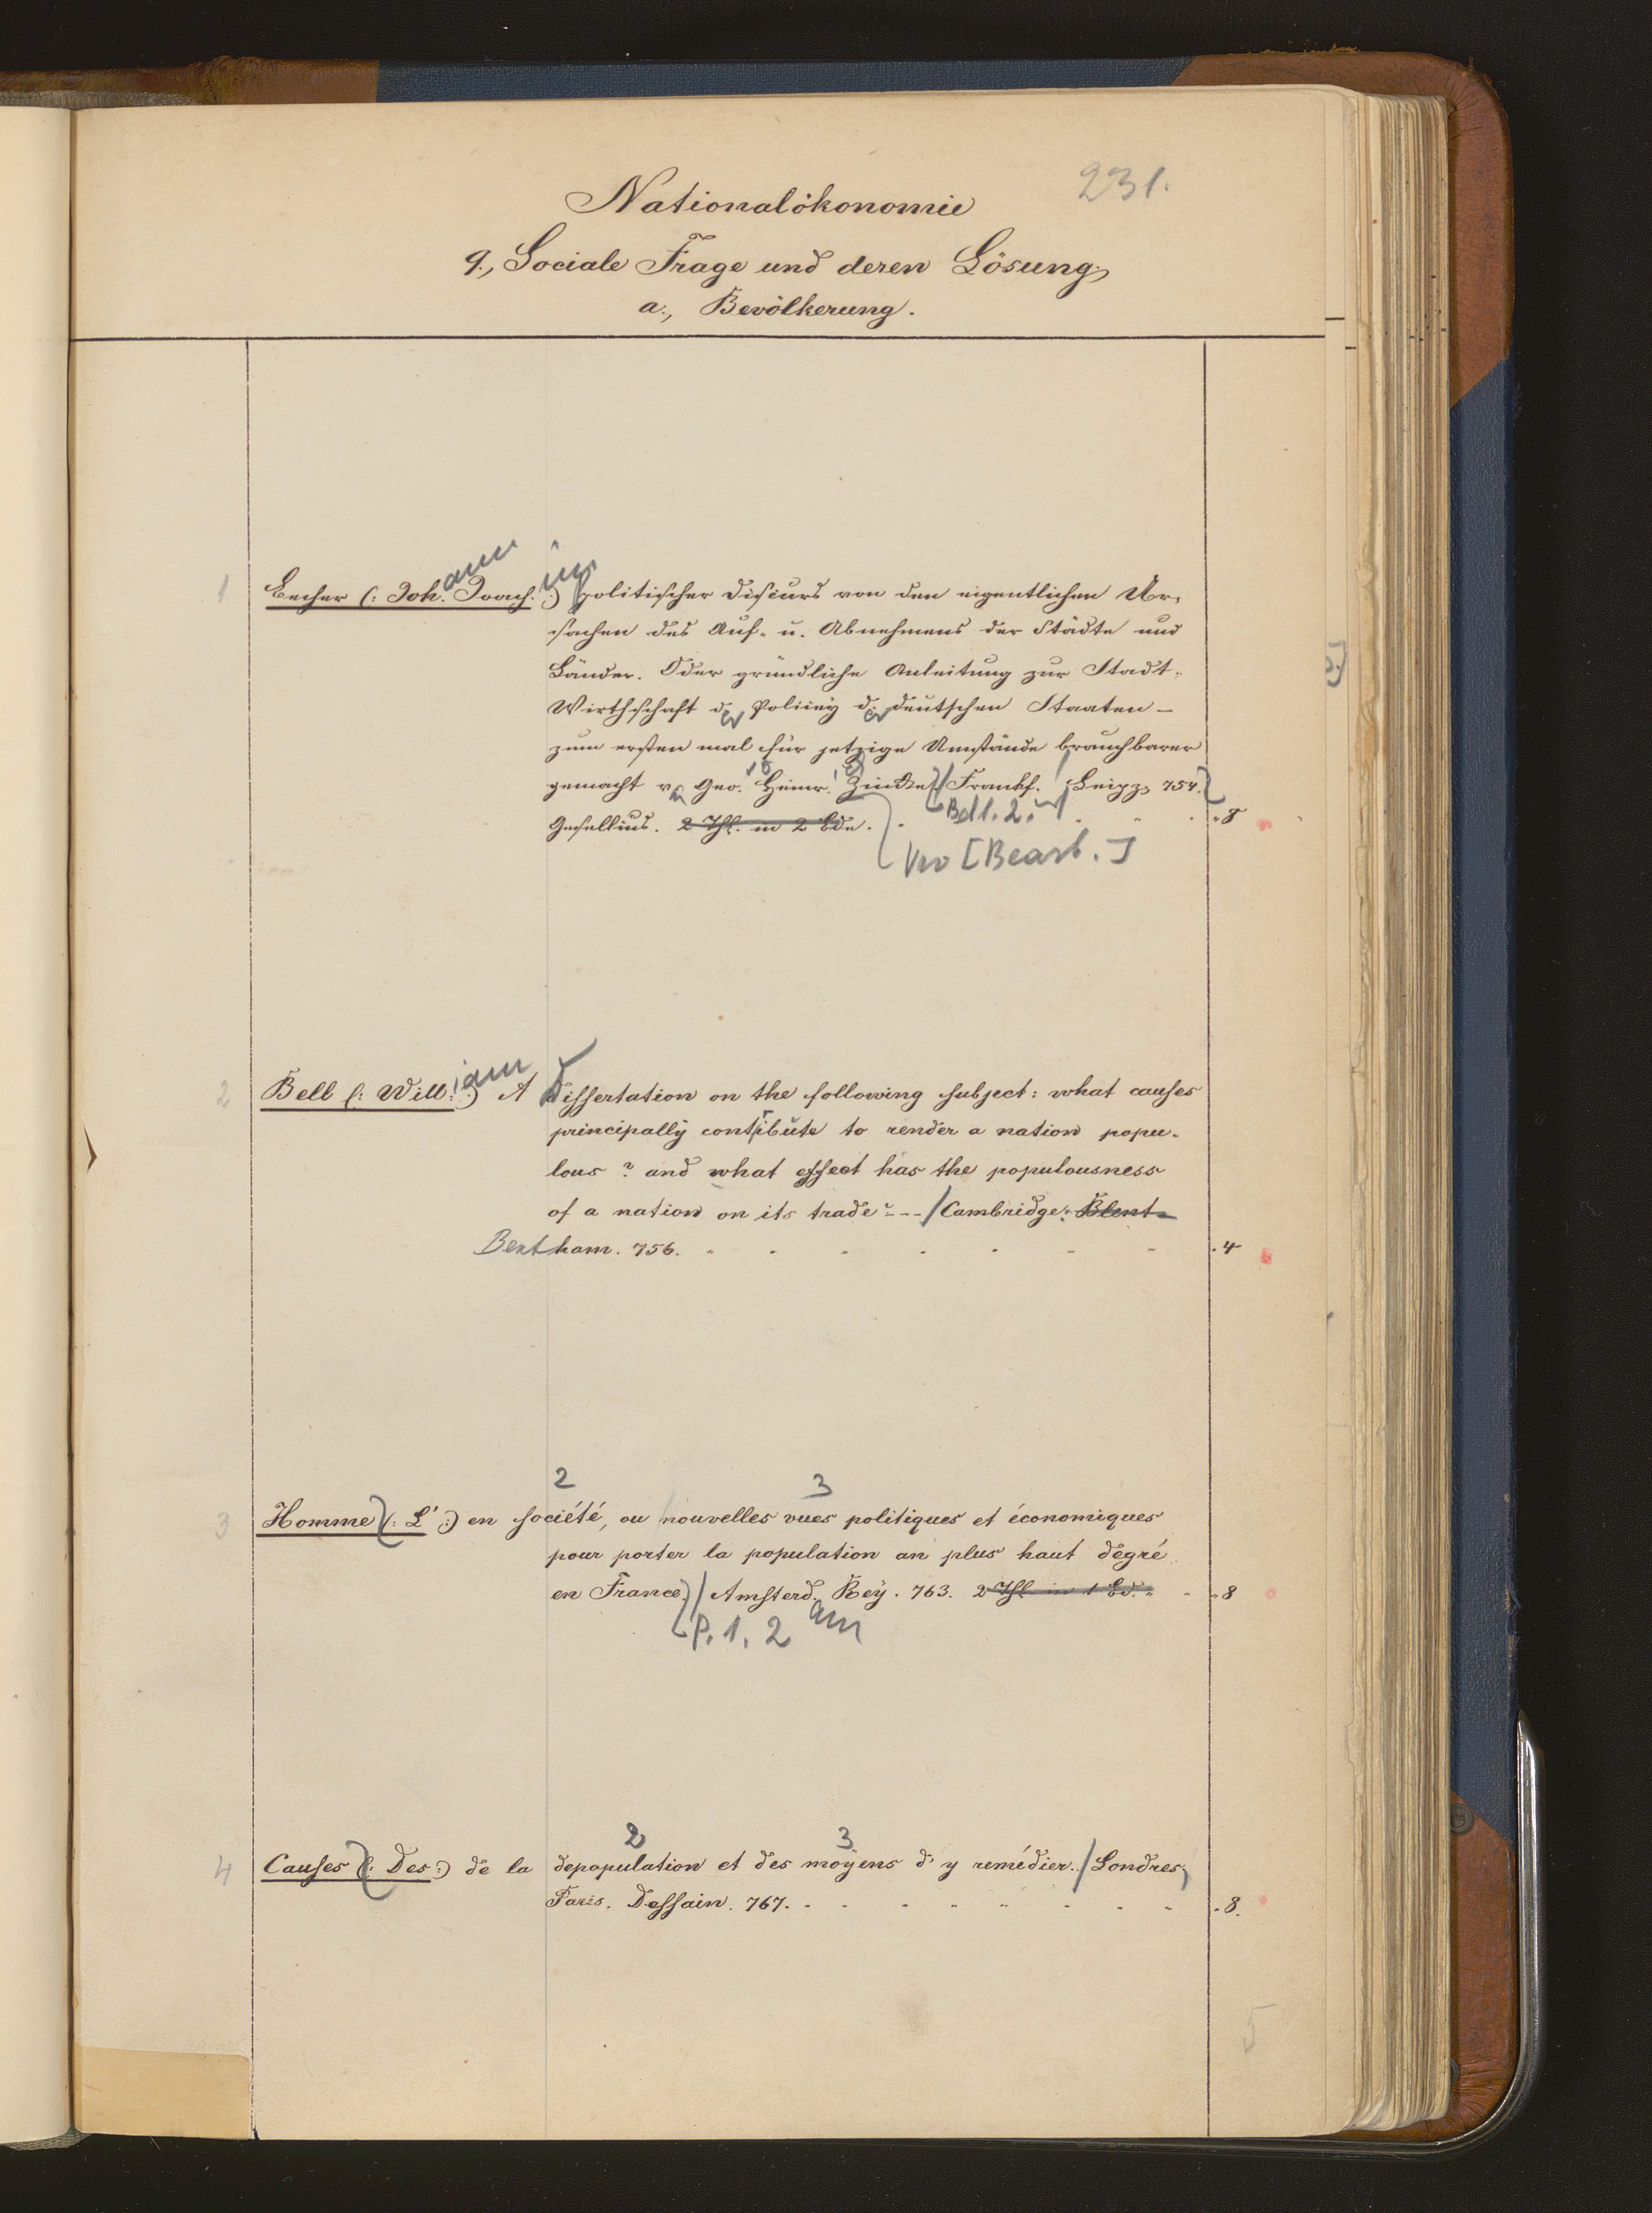 231.
Nationalökonomie
9., Sociale Frage und deren Lösung,
a., Bevölkerung.
1 Becher (: Joh.ann Joach.im :) politischer Discurs von den eigentlichen Ur-
sachen des Auf- u. Abnehmens der Städte und
Länder. Oder gründliche Anleitung zur Stadt-
Wirthschaft d.er Policey d.er deutschen Staaten –
zum ersten mal für jetzige Umstände brauchbarer
gemacht v. Geo. Heinr. Zincke / Frankf. Leipz, 754.
Gesellius. 2 Thl. in 2 Bde. Bd 1. 2. 8
[Bearb.]
2 Bell (: Will.iam :) A Dissertation on the following subject: what causes
principally contribute to render a nation popu-
lous? and what effect has the populousness
of a nation on its trade? -- / Cambridge. Blent-
Bentham. 756. 4
2 3
3 Homme (: L' :) en société, ou nouvelles vues politiques et économiques
pour porter la population au plus haut dégré
en France. / Amsterd.am Rey. 763. 2 Thl in 1 Bd. 8
P. 1. 2
2 3
4 Causes (: Des :) de la depopulation et des moyens d'y remédier. / Londres,
Paris. Dessain. 767. 8.
5